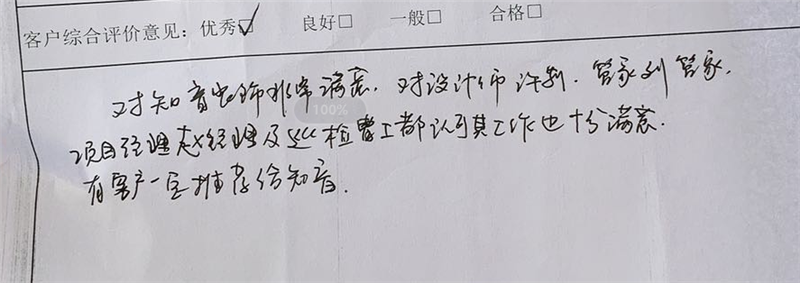 客户综合评价意见：优秀☑ 良好□ 一般□ 合格□
对知音电饰非常满意，对设计师许荆、管家刘管家，
项目经理赵经理及巡检曹工都认可其工作也十分满意.
有客户一定推荐给知音.
100%